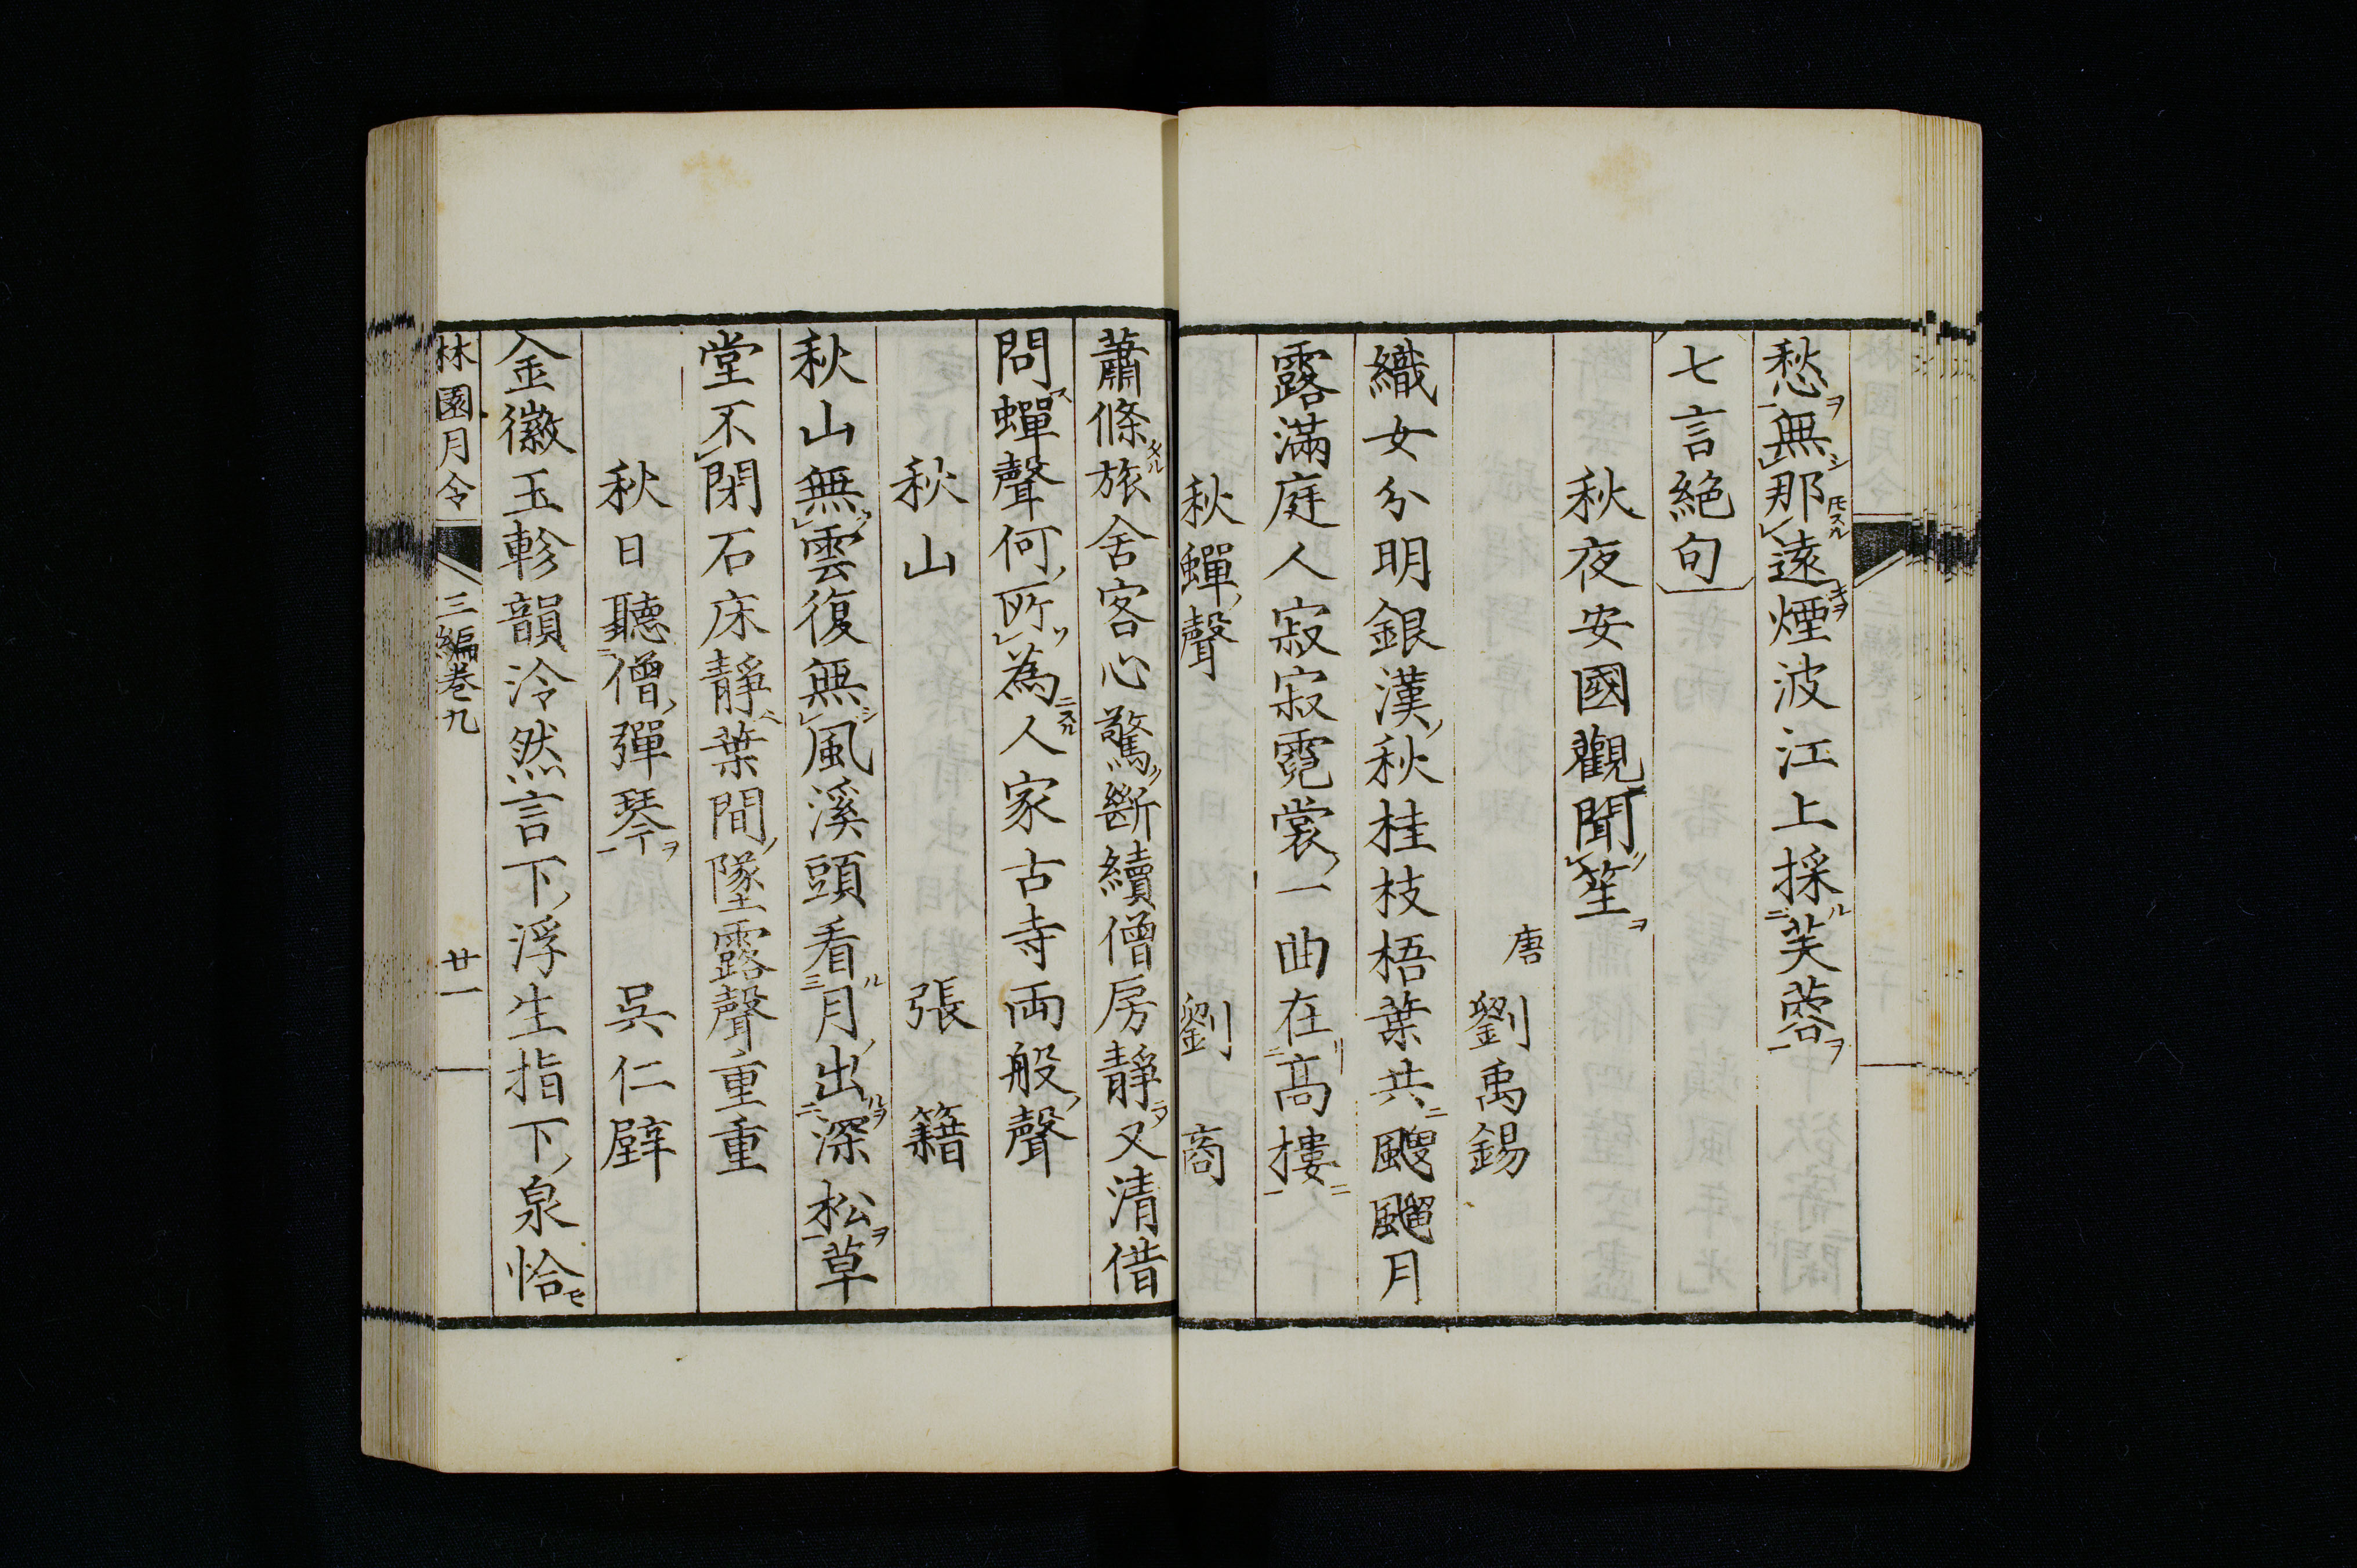 愁無那遠煙波江上採芙蓉
七言絶句
秋夜安國觀聞笙
唐 劉禹錫
織女分明銀漢秋桂枝梧葉共颼飀月
露滿庭人寂寂霓裳一曲在高摟
秋蟬聲 劉商
蕭條旅舍客心驚斷續僧房靜又清借
問蟬聲何所為人家古寺両般聲
秋山 張籍
秋山無雲復無風溪頭看月出深松草
堂不閉石床靜葉間墜露聲重重
秋日聽僧彈琴 吳仁璧
金徽玉軫韻泠然言下浮生指下泉恰
林園月令 三編卷九 廿一